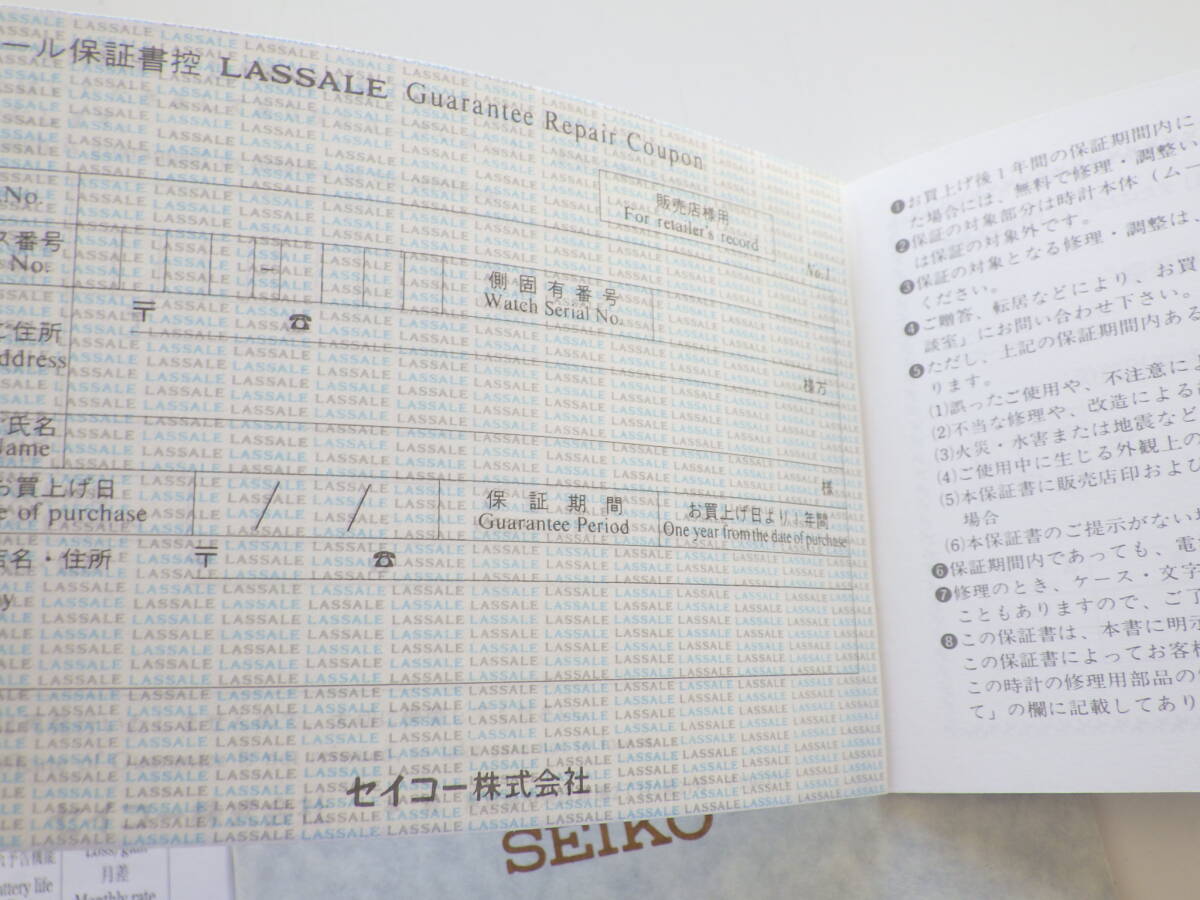 ール保証書控 LASSALE Guarantee Repair Coupon
販売店様用
For retailer's record
No.1
No.
ス番号
No.
側固有番号
Watch Serial No.
〒 ☎
ご住所
Address
様方
ご氏名
Name
様
お買上げ日
e of purchase
/ /
保証期間
Guarantee Period
お買上げ日より1年間
One year from the date of purchase
店名・住所
〒 ☎
by
セイコー株式会社
❶お買上げ後1年間の保証期間内に
た場合には、無料で修理・調整い
❷保証の対象部分は時計本体(ムー
は保証の対象外です。
❸保証の対象となる修理・調整は、
ください。
❹ご贈答、転居などにより、お買
談室」にお問い合わせ下さい。
❺ただし、上記の保証期間内ある
ります。
(1)誤ったご使用や、不注意によ
(2)不当な修理や、改造による
(3)火災・水害または地震など
(4)ご使用中に生じる外観上の
(5)本保証書に販売店印およひ
場合
(6)本保証書のご提示がない場
❻保証期間内であっても、電
❼修理のとき、ケース・文字
こともありますので、ご了
❽この保証書は、本書に明示
この保証書によってお客様
この時計の修理用部品の
て」の欄に記載してあり
SEIKO
予告機能
attery life
Loss/gain
月差
Monthly rate